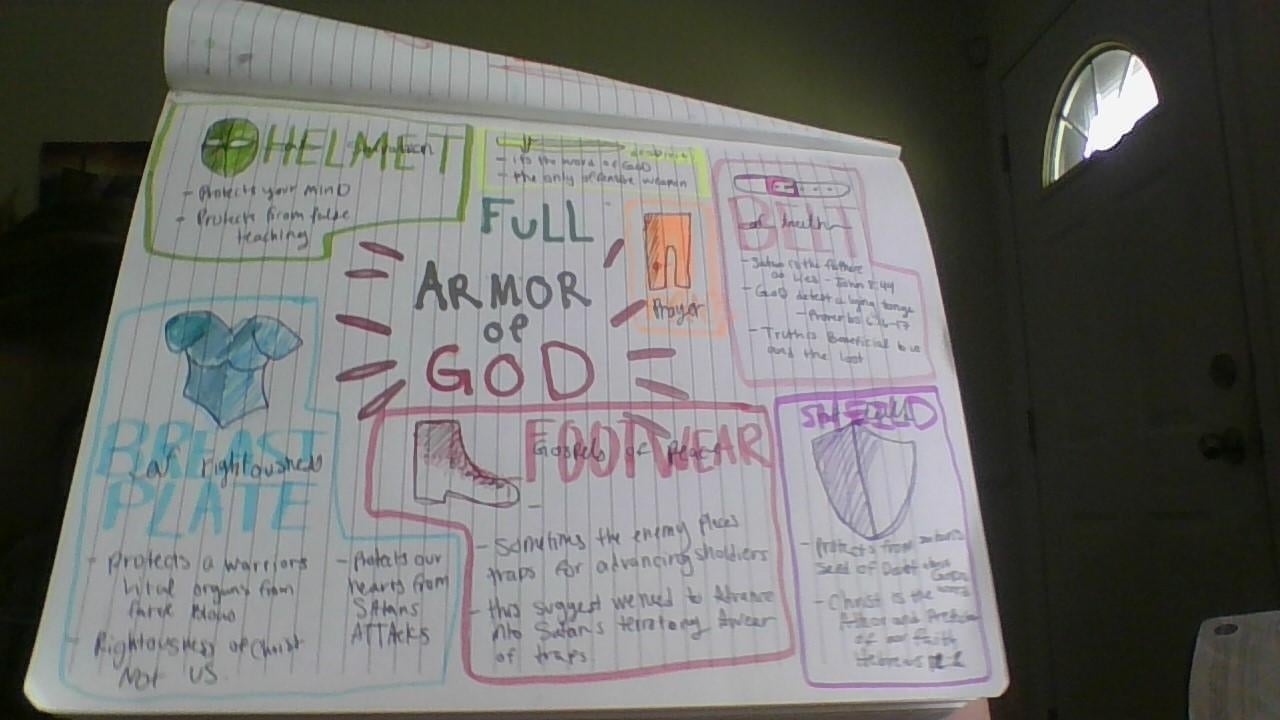 HELMET
- Protects your minD
- Protects from false
teaching
- its the word of GoD
- the only ofensive weapon
FULL
ARMOR
OF
GOD
Prayer
BELT
of truth
- Satan is the
of Lies - John 8:44
- GoD detest a lying tonge
- Proverbs 6:16-17
- Truth is Beneficial to us
and the lost
BREAST
of rightousness
PLATE
- Protects a warriors
Vital organs from
Blows
- Rightousness of Christ
Not US
- Protects our
hearts from
SAtans
ATTAcks
FOOTWEAR
Gospels of Peace
- Sometimes the enemy places
traps for advancing sholdiers
- this suggest we need to Advance
into Satan's territory Awear
of traps
- Protects from satans
Seed of Doubt about
GoDs
word
- Christ is the
and
of our faith
Hebrews